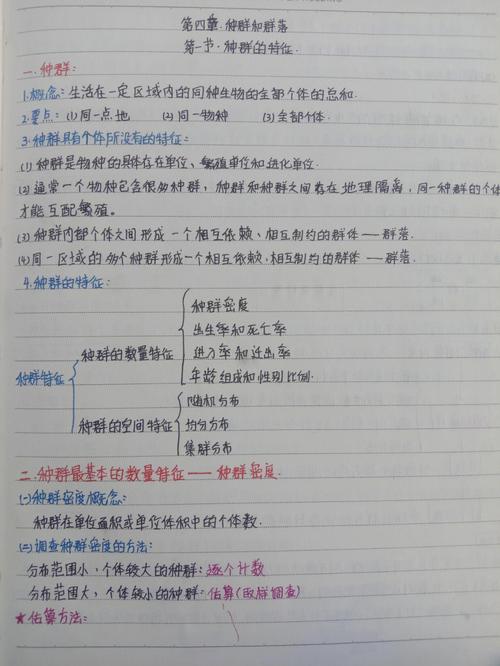 第四章.种群和群落
第一节.种群的特征.
一.种群:
1.概念:生活在一定区域内的同种生物的全部个体的总和.
2.要点:(1)同一点地 (2)同一物种 (3)全部个体.
3.种群具有个体所没有的特征:
(1)种群是物种的具体存在单位、繁殖单位和进化单位.
(2)通常一个物种包含很多种群,种群和种群之间存在地理隔离,同一种群的个体
才能互配繁殖。
(3)种群内部个体之间形成一个相互依赖、相互制约的群体——群落.
(4)同一区域的多个种群形成一个相互依赖,相互制约的群体——群落.
4.种群的特征:
种群密度
出生率和死亡率
种群的数量特征
进入率和迁出率
年龄组成和性别比例.
种群特征
随机分布
种群的空间特征
均匀分布
集群分布
二.种群最基本的数量特征——种群密度.
(一)种群密度概念:
种群在单位面积或单位体积中的个体数.
(二)调查种群密度的方法:
分布范围小,个体较大的种群:逐个计数
分布范围大,个体较小的种群:估算(取样调查)
★估算方法: